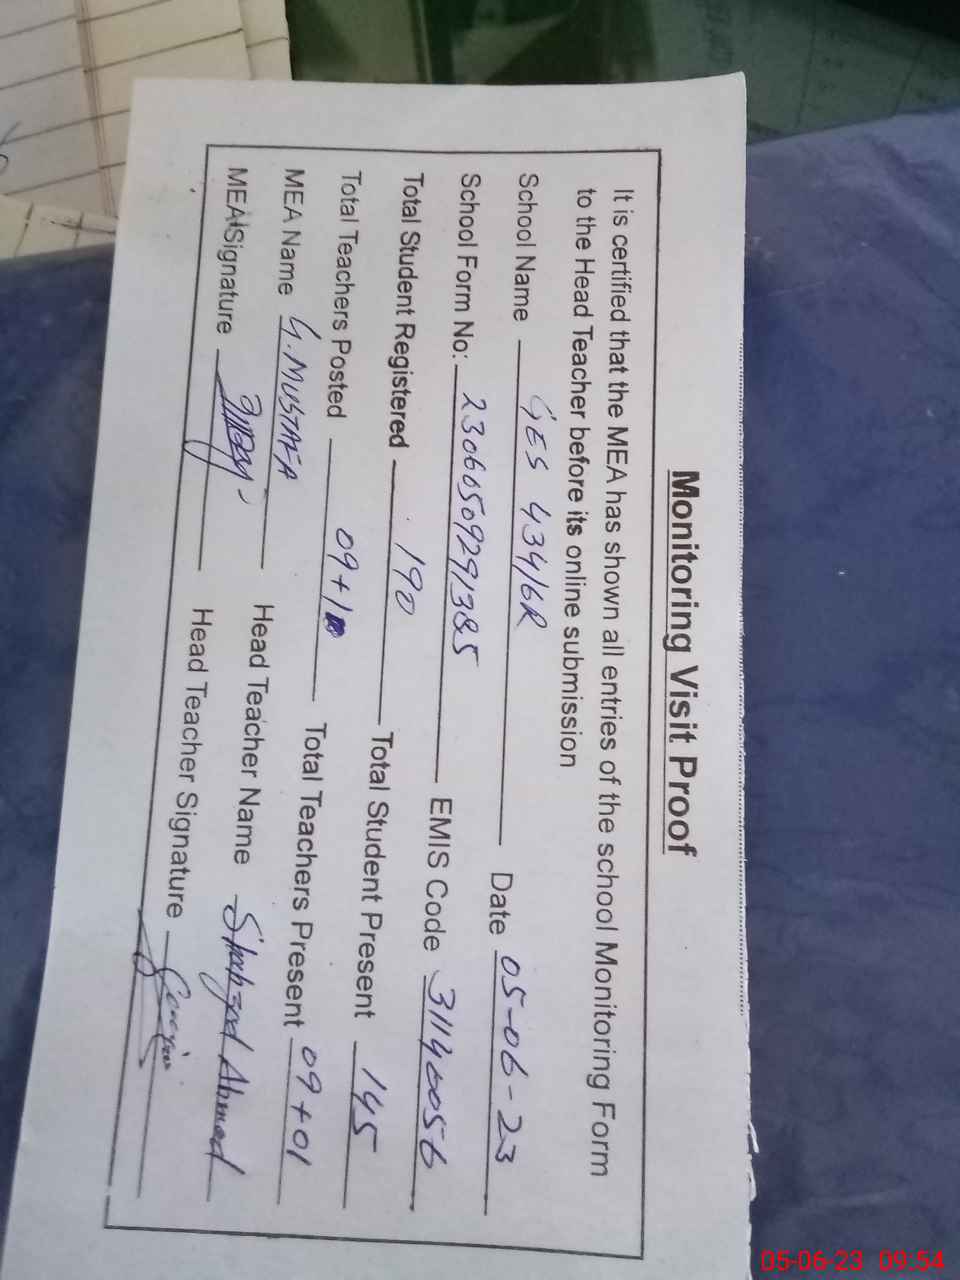 Monitoring Visit Proof
It is certified that the MEA has shown all entries of the school Monitoring Form
to the Head Teacher before its online submission
School Name GES 434/6R Date 05-06-23
School Form No: 23060509291385 EMIS Code 31140056
Total Student Registered 190 Total Student Present 145
Total Teachers Posted 09+1 Total Teachers Present 09+01
MEA Name G.MUSTAFA Head Teacher Name Shahzad Ahmed
MEA Signature Head Teacher Signature
05-06-23 09:54